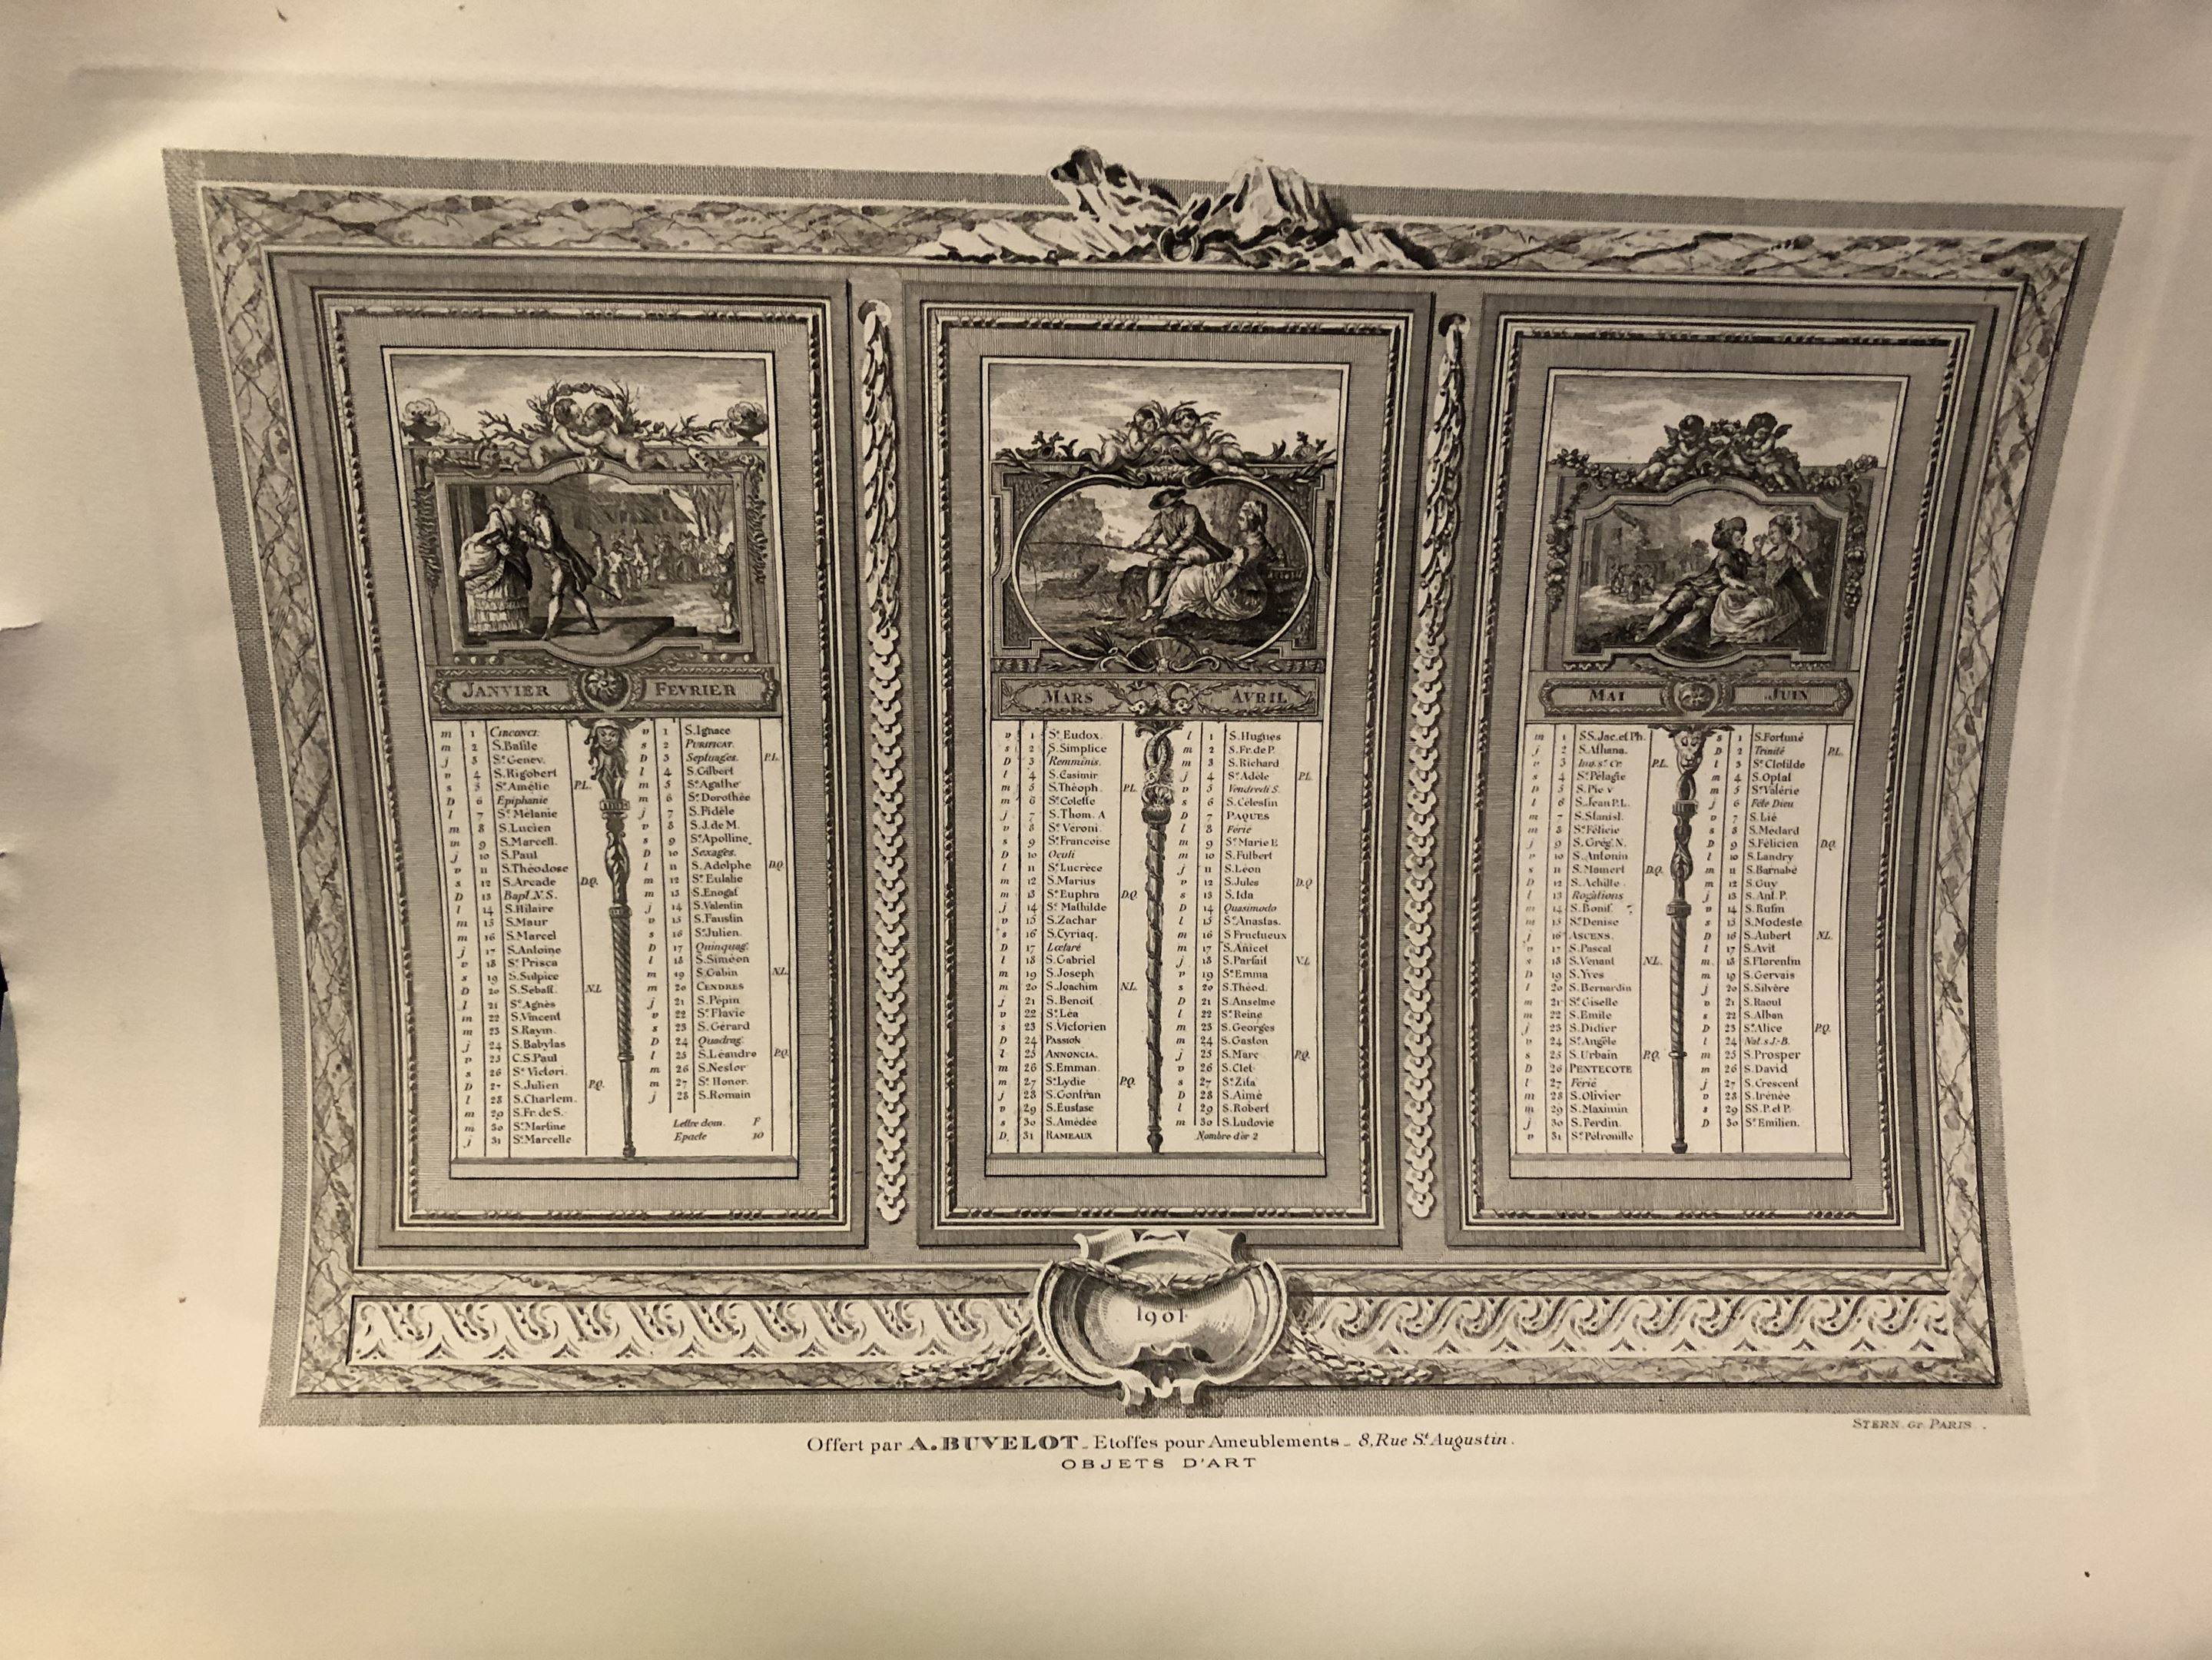 JANVIER FEVRIER
m 1 CIRCONCI.
m 2 S.Basile
j 3 Ste Genev.
v 4 S.Rigobert
s 5 Ste Amélie P.L.
D 6 Epiphanie
l 7 Ste Mélanie
m 8 S.Lucien
m 9 S.Marcell.
j 10 S.Paul
v 11 S.Théodose
s 12 S.Arcade D.Q.
D 13 Bapt.N.S.
l 14 S.Hilaire
m 15 S.Maur
m 16 S.Marcel
j 17 S.Antoine
v 18 Ste Prisca
s 19 S.Sulpice
D 20 S.Sébast. N.L
l 21 Ste Agnès
m 22 S.Vincent
m 23 S.Raym.
j 24 S.Babylas
v 25 C.S.Paul
s 26 Ste Victori.
D 27 S.Julien P.Q.
l 28 S.Charlem.
m 29 S.Fr.de S.
m 30 Ste Martine
j 31 Ste Marcelle
v 1 S.Ignace
s 2 PURIFICAT.
D 3 Septuages. P.L.
l 4 S.Gilbert
m 5 Ste Agathe
m 6 Ste Dorothée
j 7 S.Fidèle
v 8 S.J.de M.
s 9 Ste Apolline
D 10 Sexages.
l 11 S.Adolphe D.Q.
m 12 Ste Eulalie
m 13 S.Enogat
j 14 S.Valentin
v 15 S.Faustin
s 16 Ste Julien.
D 17 Quinquag.
l 18 S.Siméon
m 19 S.Gabin N.L.
m 20 CENDRES
j 21 S.Pépin
v 22 Ste Flavie
s 23 S.Gérard
D 24 Quadrag.
l 25 S.Léandre P.Q.
m 26 S.Nestor
m 27 Ste Honor.
j 28 S.Romain
Lettre dom. F
Epacte 10
MARS AVRIL
v 1 Ste Eudox.
s 2 S.Simplice
D 3 Reminnis.
l 4 S.Casimir
m 5 S.Théoph. P.L.
m 6 Ste Colette
j 7 S.Thom. A
v 8 Ste Véroni.
s 9 Ste Francoise
D 10 Oculi
l 11 Ste Lucrèce
m 12 S.Marius
m 13 Ste Euphra D.Q.
j 14 Ste Mathilde
v 15 S.Zachar
s 16 S.Cyriaq.
D 17 Lœtaré
l 18 S.Gabriel
m 19 S.Joseph
m 20 S.Joachim N.L.
j 21 S.Benoit
v 22 Ste Léa
s 23 S.Victorien
D 24 PASSION
l 25 ANNONCIA.
m 26 S.Emman.
m 27 Ste Lydie P.Q.
j 28 S.Gontran
v 29 S.Eustase
s 30 S.Amédée
D 31 RAMEAUX
l 1 S.Hugues
m 2 S.Fr.de P.
m 3 S.Richard
j 4 Ste Adèle P.L.
v 5 Vendredi S.
s 6 S.Célestin
D 7 PAQUES
l 8 Férié
m 9 Ste Marie E
m 10 S.Fulbert
j 11 S.Léon
v 12 S.Jules D.Q
s 13 S.Ida
D 14 Quasimodo
l 15 Ste Anastas.
m 16 S Fructueux
m 17 S.Anicet
j 18 S.Parfait N.L
v 19 Ste Emma
s 20 S.Théod.
D 21 S.Anselme
l 22 Ste Reine
m 23 S.Georges
m 24 S.Gaston
j 25 S.Marc P.Q.
v 26 S.Clet
s 27 Ste Zita
D 28 S.Aimé
l 29 S.Robert
m 30 S.Ludovic
Nombre d'or 2
MAI JUIN
m 1 SS.Jac.et Ph.
j 2 S.Athana.
v 3 Inv.Ste Cr. P.L.
s 4 Ste Pélagie
D 5 S.Pie V
l 6 S.Jean P.L.
m 7 S.Stanisl.
m 8 Ste Félicie
j 9 S.Grég.N.
v 10 S.Antonin
s 11 S.Mamert D.Q.
D 12 S.Achille
l 13 Rogations
m 14 S.Bonif.
m 15 Ste Denise
j 16 ASCENS.
v 17 S.Pascal
s 18 S.Venant N.L.
D 19 S.Yves
l 20 S.Bernardin
m 21 Ste Giselle
m 22 S.Emile
j 23 S.Didier
v 24 Ste Angèle
s 25 S.Urbain P.Q.
D 26 PENTECOTE
l 27 Férié
m 28 S.Olivier
m 29 S.Maximin
j 30 S.Ferdin.
v 31 Ste Pétronille
s 1 S.Fortuné
D 2 Trinité P.L.
l 3 Ste Clotilde
m 4 S.Optat
m 5 Ste Valérie
j 6 Fête Dieu
v 7 S.Lié
s 8 S.Medard
D 9 S.Félicien D.Q.
l 10 S.Landry
m 11 S.Barnabé
m 12 S.Guy
j 13 S.Ant.P.
v 14 S.Rufin
s 15 S.Modeste
D 16 S.Aubert N.L.
l 17 S.Avit
m 18 S.Florentin
m 19 S.Gervais
j 20 S.Silvère
v 21 S.Raoul
s 22 S.Alban
D 23 Ste Alice P.Q.
l 24 Nat.s J-B.
m 25 S.Prosper
m 26 S.David
j 27 S.Crescent
v 28 S.Irénée
s 29 SS.P.et P.
D 30 Ste Emilien.
1901
STERN. Gr. PARIS.
Offert par A.BUVELOT_Etoffes pour Ameublements_8,Rue St Augustin.
OBJETS D'ART